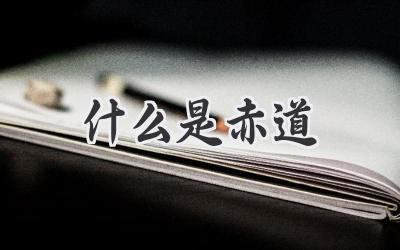 什么是赤道